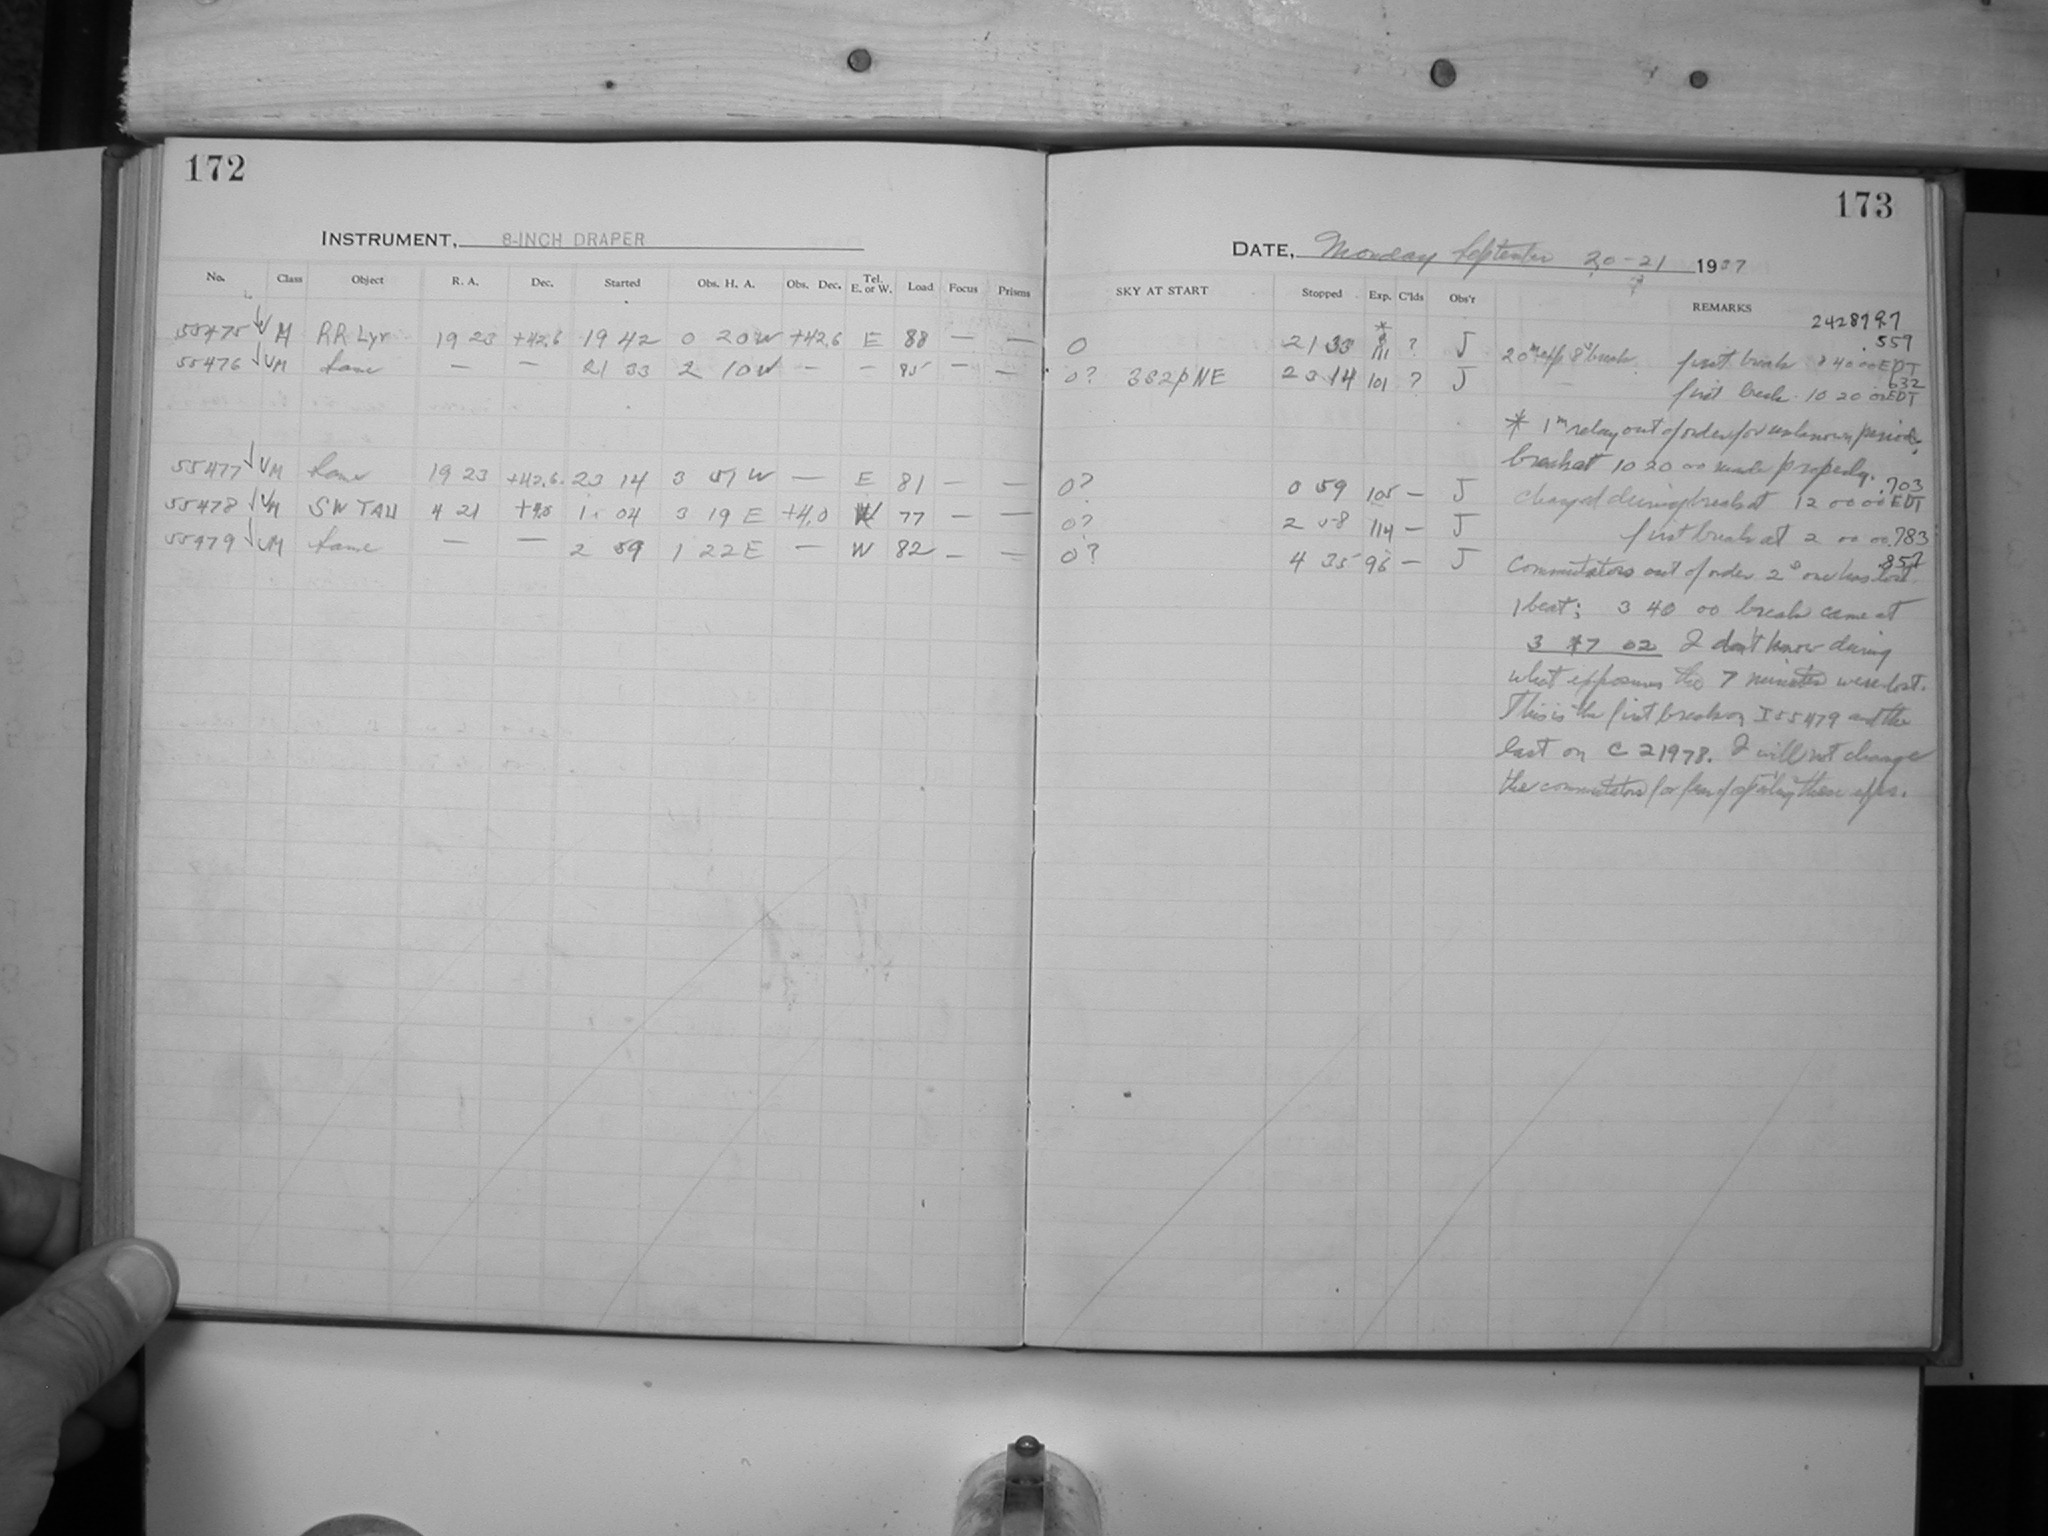 172
INSTRUMENT, 8-INCH DRAPER
No. Class Object R. A. Dec. Started Obs. H. A. Obs. Dec. Tel. E. or W. Load Focus Prisms
55475 M RR Lyr 19 23 +42.6 19 42 0 20 W +42.6 E 88 — —
55476 VM Same — — 21 33 2 10 W — — 85 — —
55477 VM Same 19 23 +42.6 23 14 3 51 W — E 81 — —
55478 VM SW TAU 4 21 1 04 3 19 E +4.0 W 77 — —
55479 VM Same — — 2 59 1 22 E — W 82 — —
173
DATE, Monday September 20-21 1937
SKY AT START Stopped Exp. C'lds Obs'r REMARKS
2428797
.559
0 21 33 * 111 ? J 20m exp 8s break. first break 8 40 00 EDT
.632
0? 382p NE 23 14 101 ? J first break 10 20 00 EDT
* 1m relay out of order for unknown period,
break at 10 20 00 made properly.
.703
0? 0 59 105 — J changed during break at 12 00 00 EDT
0? 2 58 114 — J first break at 2 00 00 .783
.857
0? 4 35 96 — J Commutators out of order 2s one has lost
1 beat; 3 40 00 break came at
3 47 02 I don't know during
what exposures the 7 minutes were lost.
This is the first break on I 55479 and the
last on C 21978. I will not change
the commutators for fear of spoiling these exps.